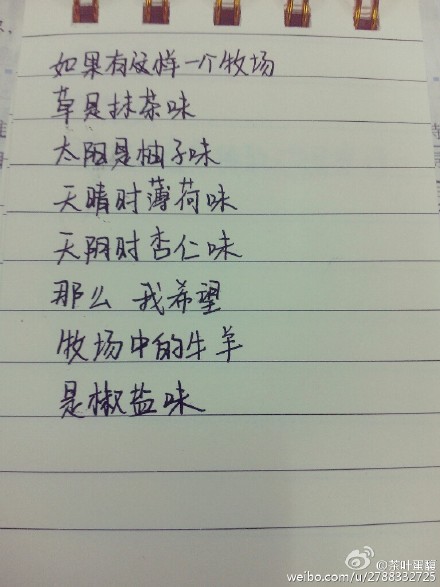 如果有这样一个牧场
草是抹茶味
太阳是柚子味
天晴时薄荷味
天阴时杏仁味
那么 我希望
牧场中的牛羊
是椒盐味
@茶叶蛋馥
weibo.com/u/2788332725